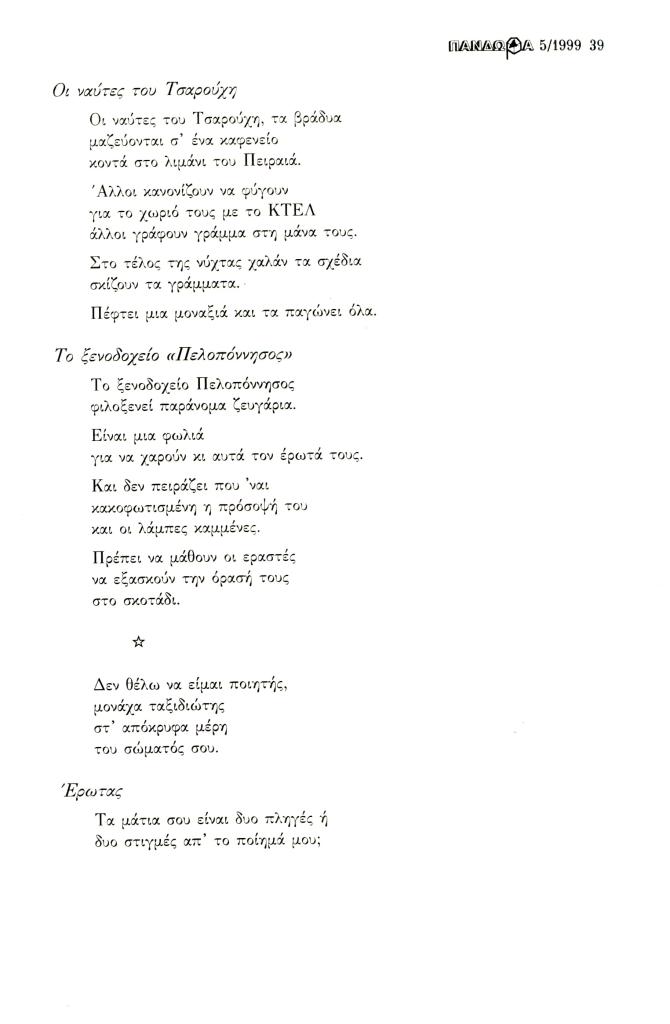 ΠΑΝΔΩΡΑ 5/1999 39
Οι ναύτες του Τσαρούχη
Οι ναύτες του Τσαρούχη, τα βράδυα
μαζεύονται σ' ένα καφενείο
κοντά στο λιμάνι του Πειραιά.
Άλλοι κανονίζουν να φύγουν
για το χωριό τους με το ΚΤΕΛ
άλλοι γράφουν γράμμα στη μάνα τους.
Στο τέλος της νύχτας χαλάν τα σχέδια
σκίζουν τα γράμματα.
Πέφτει μια μοναξιά και τα παγώνει όλα.
Το ξενοδοχείο «Πελοπόννησος»
Το ξενοδοχείο Πελοπόννησος
φιλοξενεί παράνομα ζευγάρια.
Είναι μια φωλιά
για να χαρούν κι αυτά τον έρωτά τους.
Και δεν πειράζει που 'ναι
κακοφωτισμένη η πρόσοψή του
και οι λάμπες καμμένες.
Πρέπει να μάθουν οι εραστές
να εξασκούν την όρασή τους
στο σκοτάδι.
☆
Δεν θέλω να είμαι ποιητής,
μονάχα ταξιδιώτης
στ' απόκρυφα μέρη
του σώματός σου.
Έρωτας
Τα μάτια σου είναι δυο πληγές ή
δυο στιγμές απ' το ποίημά μου;